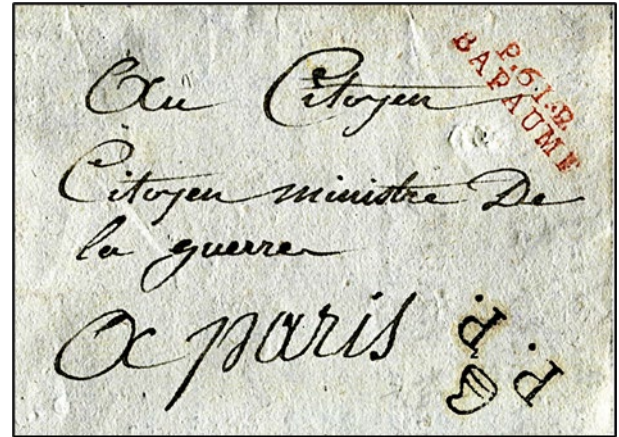 P.61.P.
BAPAUME
Au Citoyen
Citoyen ministre De
la guerre
a paris
P. P.